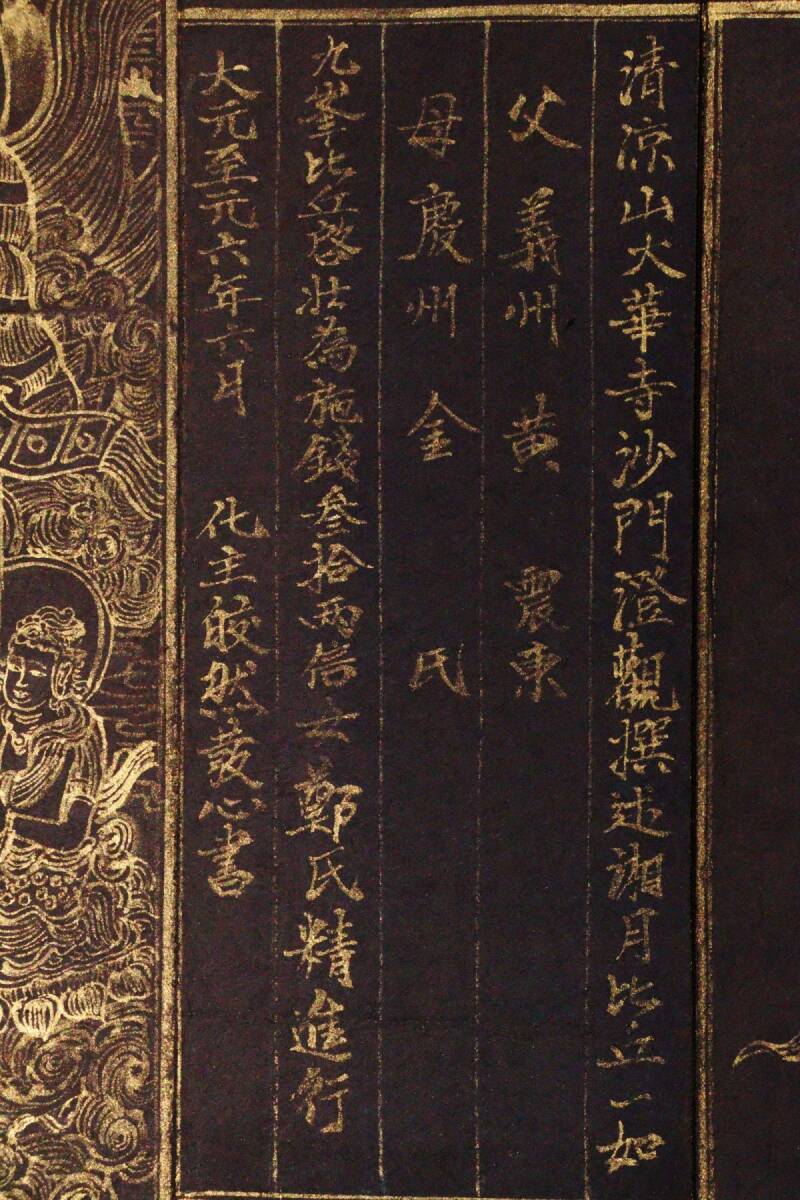 清凉山大華寺沙門澄觀撰述湘月比丘一如
父義州黄震東
母慶州金氏
九峯比丘啓壯為施錢叄拾兩信士鄭氏精進行
大元至元六年六月 化主皎然發心書